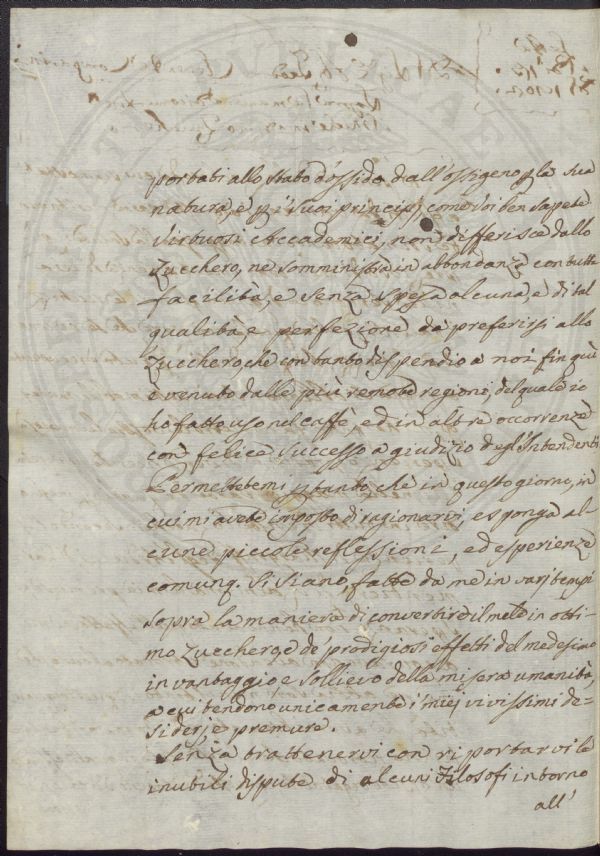 portati allo stato d'ossido dall'ossigeno p la sua
natura, e p i suoi principj, come voi ben sapete
Virtuosi Accademici, non differisce dallo
Zucchero, ne somministra in abbondanza con tutta
facilità, e senza spesa alcuna, e di tal
qualità, e perfezione da preferirsi allo
Zucchero, che con tanto dispendio a noi fin quì
è venuto dalle più remote regioni, del quale io
ho fatto uso nel caffè, ed in altre occorrenze
con felice successo a giudizio degl'Intendenti
Permettetemi p tanto, che in questo giorno, in
cui mi avete imposto di ragionarvi, esponga al-
cune piccole reflessioni, ed esperienze
comunq. si siano, fatte da me in varj tempi
sopra la maniera di convertire il mele in otti-
mo Zucchero, e de' prodigiosi effetti del medesimo
in vantaggio, e sollievo della misera umanità,
a cui tendono unicamente i miej vivissimi de-
siderj, e premure.
Senza trattenervi con riportarvi le
inutili dispute di alcuni Filosofi intorno
all'